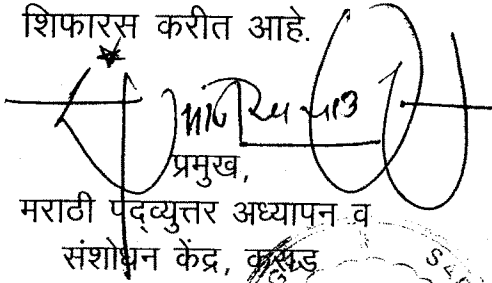 शिफारस करीत आहे.
प्रमुख,
मराठी पद्व्युत्तर अध्यापन व
संशोधन केंद्र, कन्नड